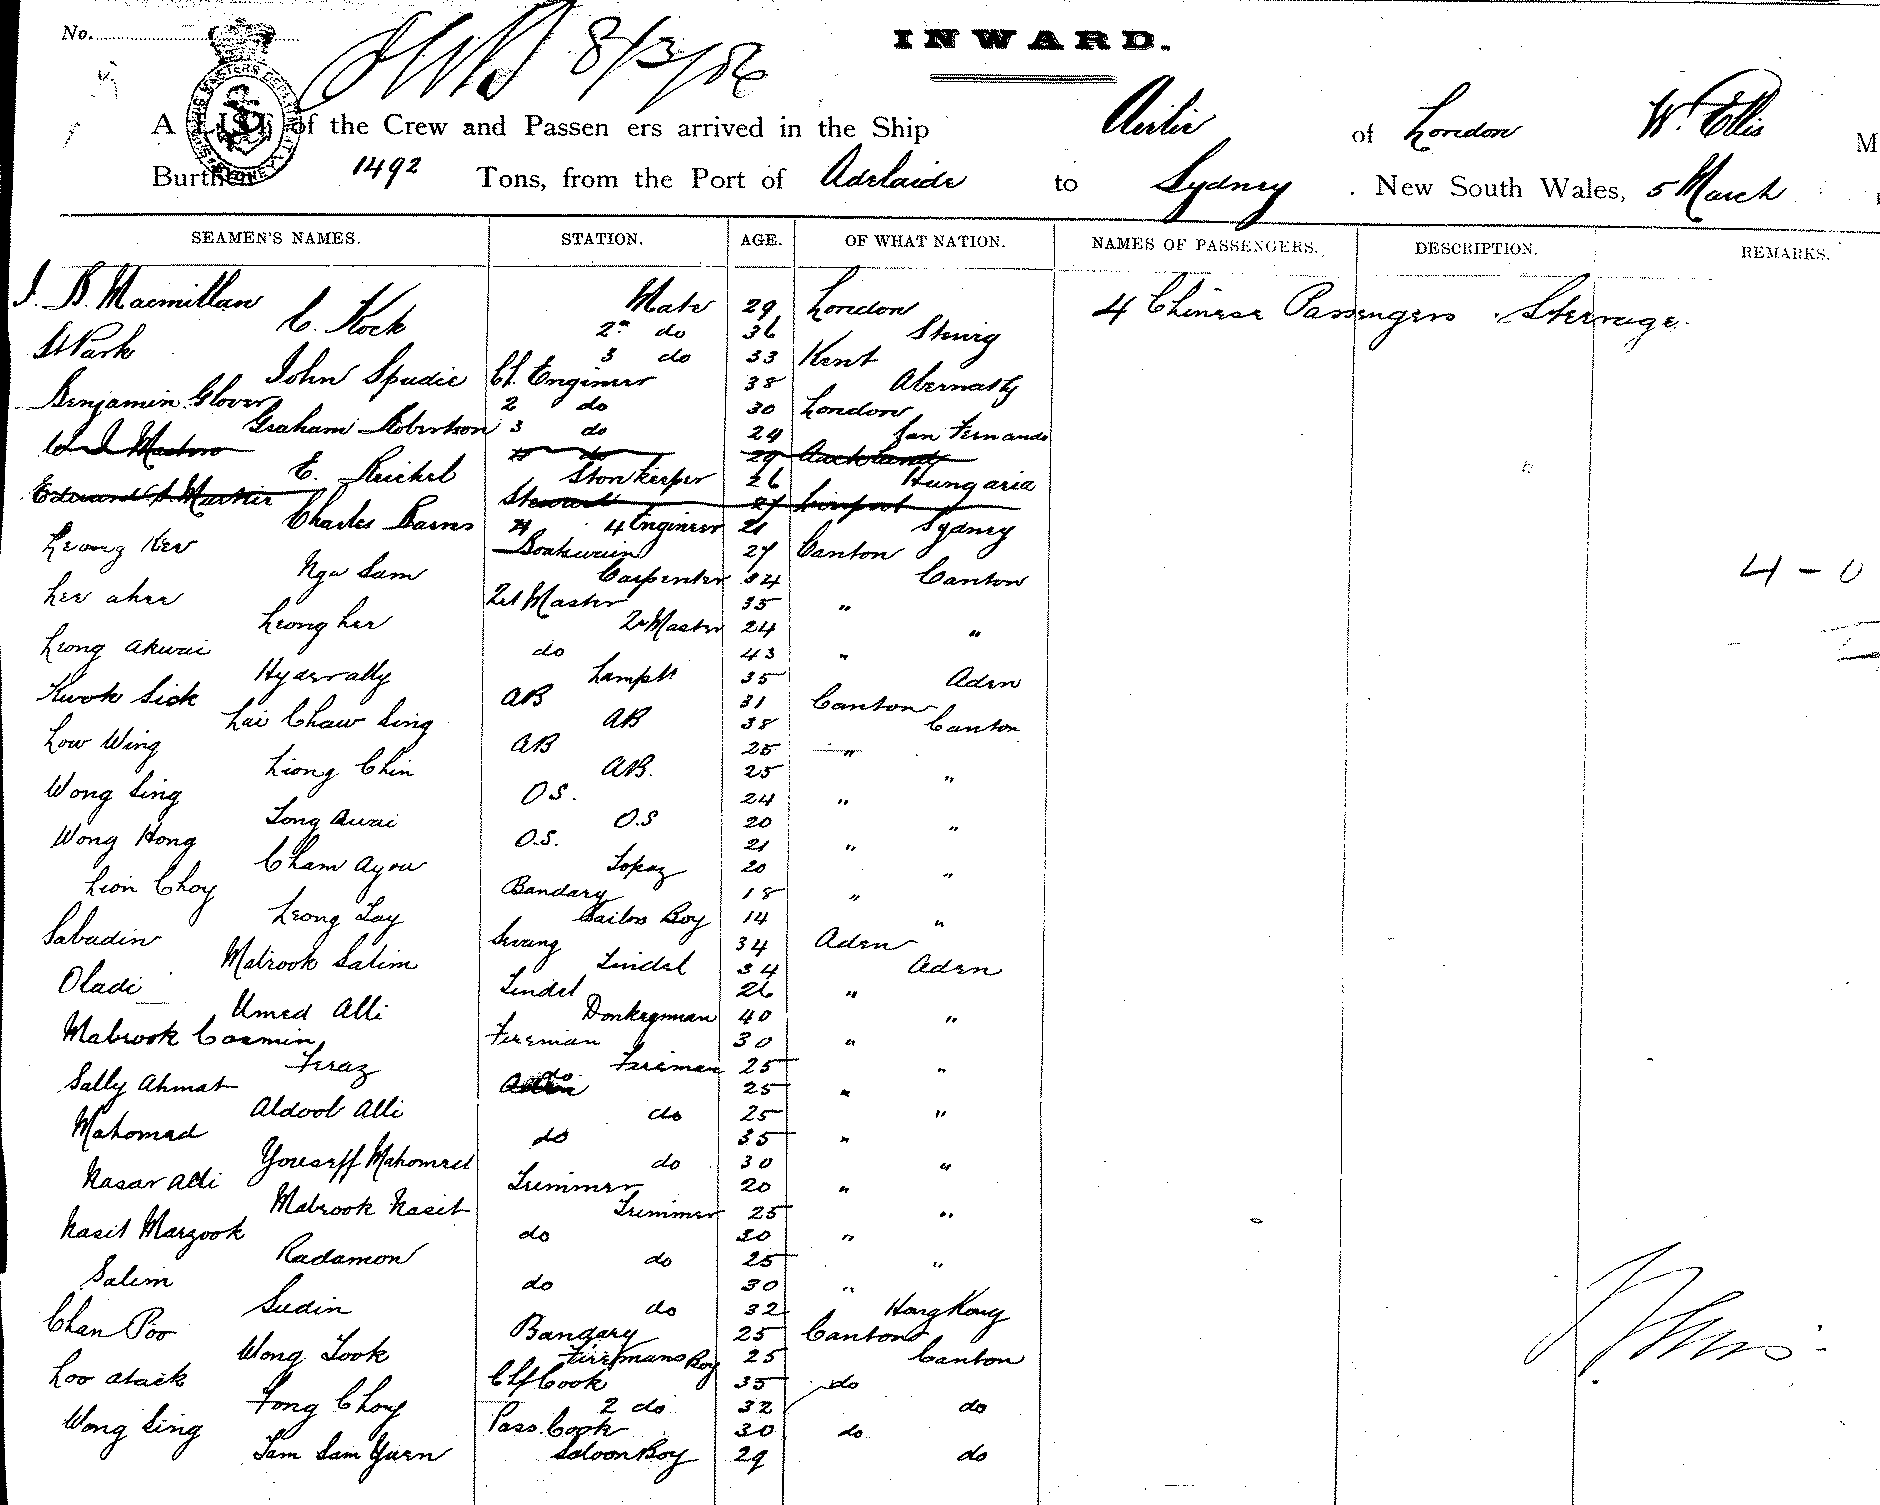 No.
8/3/86
INWARD.
A LIST of the Crew and Passen ers arrived in the Ship Airlie of London W. Ellis M
Burthen 1492 Tons, from the Port of Adelaide to Sydney . New South Wales, 5 March
SEAMEN'S NAMES. STATION. AGE. OF WHAT NATION. NAMES OF PASSENGERS. DESCRIPTION. REMARKS.
J. B. Macmillan Mate 29 London 4 Chinese Passengers . Steerage.
C. Kock 2nd do 36
Park 3 do 33 Kent
John Spudie Cf. Engineer 38
Benjamin Glover 2 do 30 London
Graham Robertson 3 do 29 San Fernando
do 29 Auckland
E. Reichel Storekeeper 26 Hungaria
Steward 27
Charles Barns 4 Engineer 21 Sydney
Leong Kee Boatswain 27 Canton
Nga Sam Carpenter 34 Canton
Lee ahee Master 35 "
Leong hee Master 24 "
Leong akwai do 43 "
Hyderally Lamps 35 Aden
Kwok Sick AB 31 Canton
Lai Chaw Sing AB 38 Canton
Low Wing AB 25 "
Liong Chin AB. 25 "
Wong Sing O S. 24 "
Tong awai O.S 20 "
Wong Hong O.S. 21 "
Cham ayou Topaz 20 "
Lion Choy Bandary 18 "
Leong Tay Sailors Boy 14 "
Sabadin Serang 34 Aden
Mabrook Salim Tindel 34 Aden
Oladi Tindel 26 "
Umed Alli Donkeyman 40 "
Mabrook Casmin Fireman 30 "
Feraz Fireman 25 "
Sally Ahmat do 25 "
Aldool Alli do 25 "
Mahomad do 35 "
Youseff Mahomed do 30 "
Nasar Alli Trimmer 20 "
Mabrook Nasit Trimmer 25 "
Nasit Marzook do 20 "
Radamon do 25 "
Salim do 30 "
Sudin do 32 Hong Kong
Chan Poo Bandary 25 Canton
Wong Took Firemans Boy 25 Canton
Loo atack Cf Cook 35 do
Tong Choy 2 do 32 do
Wong Sing Pass. Cook 30 do
Tam Sam Yuen Saloon Boy 29 do
4 - 0